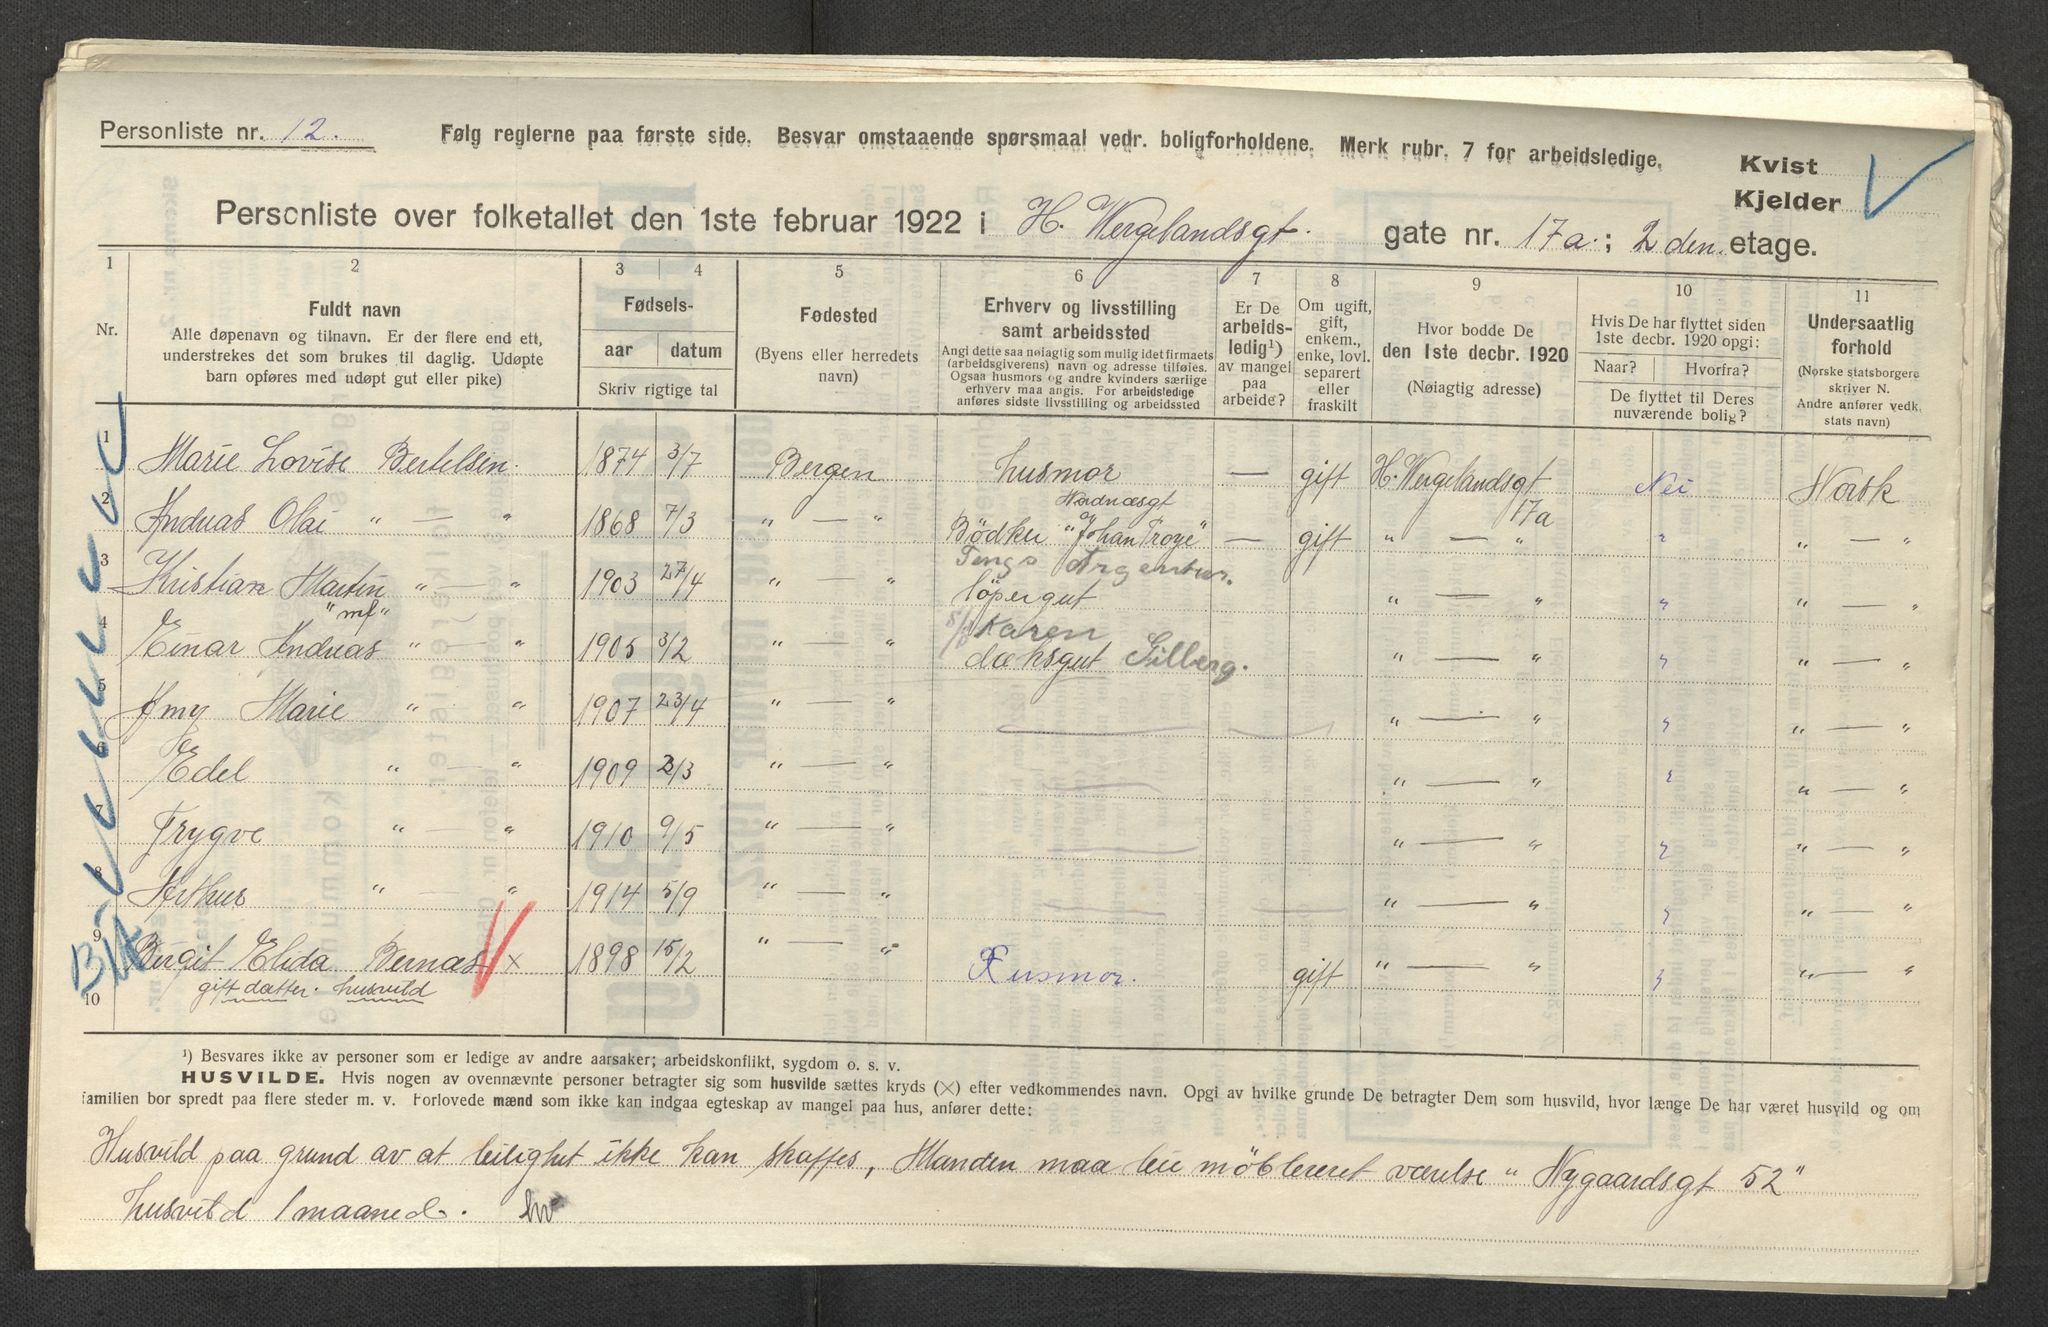 Personliste nr. 12.
Følg reglerne paa første side. Besvar omstaaende spørsmaal vedr. boligforholdene. Merk rubr. 7 for arbeidsledige.
Kvist
Kjelder
Personliste over folketallet den 1ste februar 1922 i H. Wergelandsgt. gate nr. 17a.; 2den. etage.
1 2 3 4 5 6 7 8 9 10 11
Nr.
Fuldt navn
Alle døpenavn og tilnavn. Er der flere end ett,
understrekes det som brukes til daglig. Udøpte
barn opføres med udøpt gut eller pike)
Fødsels-
aar datum
Skriv rigtige tal
Fødested
(Byens eller herredets
navn)
Erhverv og livsstilling
samt arbeidssted
Angi dette saa nøiagtig som mulig idet firmaets
(arbeidsgiverens) navn og adresse tilføies.
Ogsaa husmors og andre kvinders særlige
erhverv maa angis. For arbeidsledige
anføres sidste livsstilling og arbeidssted
Er De
arbeids-
ledig¹)
av mangel
paa
arbeide?
Om ugift,
gift,
enkem.,
enke, lovl.
separert
eller
fraskilt
Hvor bodde De
den 1ste decbr. 1920
(Nøiagtig adresse)
Hvis De har flyttet siden
1ste decbr. 1920 opgi:
Naar? Hvorfra?
De flyttet til Deres
nuværende bolig?
Undersaatlig
forhold
(Norske statsborgere
skriver N.
Andre anfører vedk.
stats navn)
1 Marie Lovise Bertelsen. 1874 3/7 Bergen husmor — gift H. Wergelandsgt 17a Nei Norsk
Nordnæsgt
2 Andreas Olai " — " 1868 7/3 " — " Bødker "Johan Troye" — gift " — " " " — "
Tings Argentur.
3 Kristian Martin " — " 1903 27/4 " — " löpergut " — " " " — "
"mf"
S/S Karen
4 Einar Andreas " — " 1905 3/2 " — " dæksgut Silberg. " — " " " — "
5 Amy Marie " — " 1907 23/4 " — " — " — " " " — "
6 Edel " — " 1909 2/3 " — " — " — " " " — "
7 Trygve " — " 1910 9/5 " — " — " — " " " — "
8 Arthur " — " 1914 5/9 " — " — — " — " " " — "
9 Birgit Elida Bernæs × 1898 15/2 " — " Husmor. gift " — " " " — "
10 gift datter. husvild
¹) Besvares ikke av personer som er ledige av andre aarsaker; arbeidskonflikt, sygdom o. s. v.
HUSVILDE. Hvis nogen av ovennævnte personer betragter sig som husvilde sættes kryds (×) efter vedkommendes navn. Opgi av hvilke grunde De betragter Dem som husvild, hvor længe De har været husvild og om
familien bor spredt paa flere steder m. v. Forlovede mænd som ikke kan indgaa egteskap av mangel paa hus, anfører dette:
Husvild paa grund av at leilighet ikke kan skaffes, Manden maa leie möbleret værelse "Nygaardsgt 52"
husvild 1 maaned.